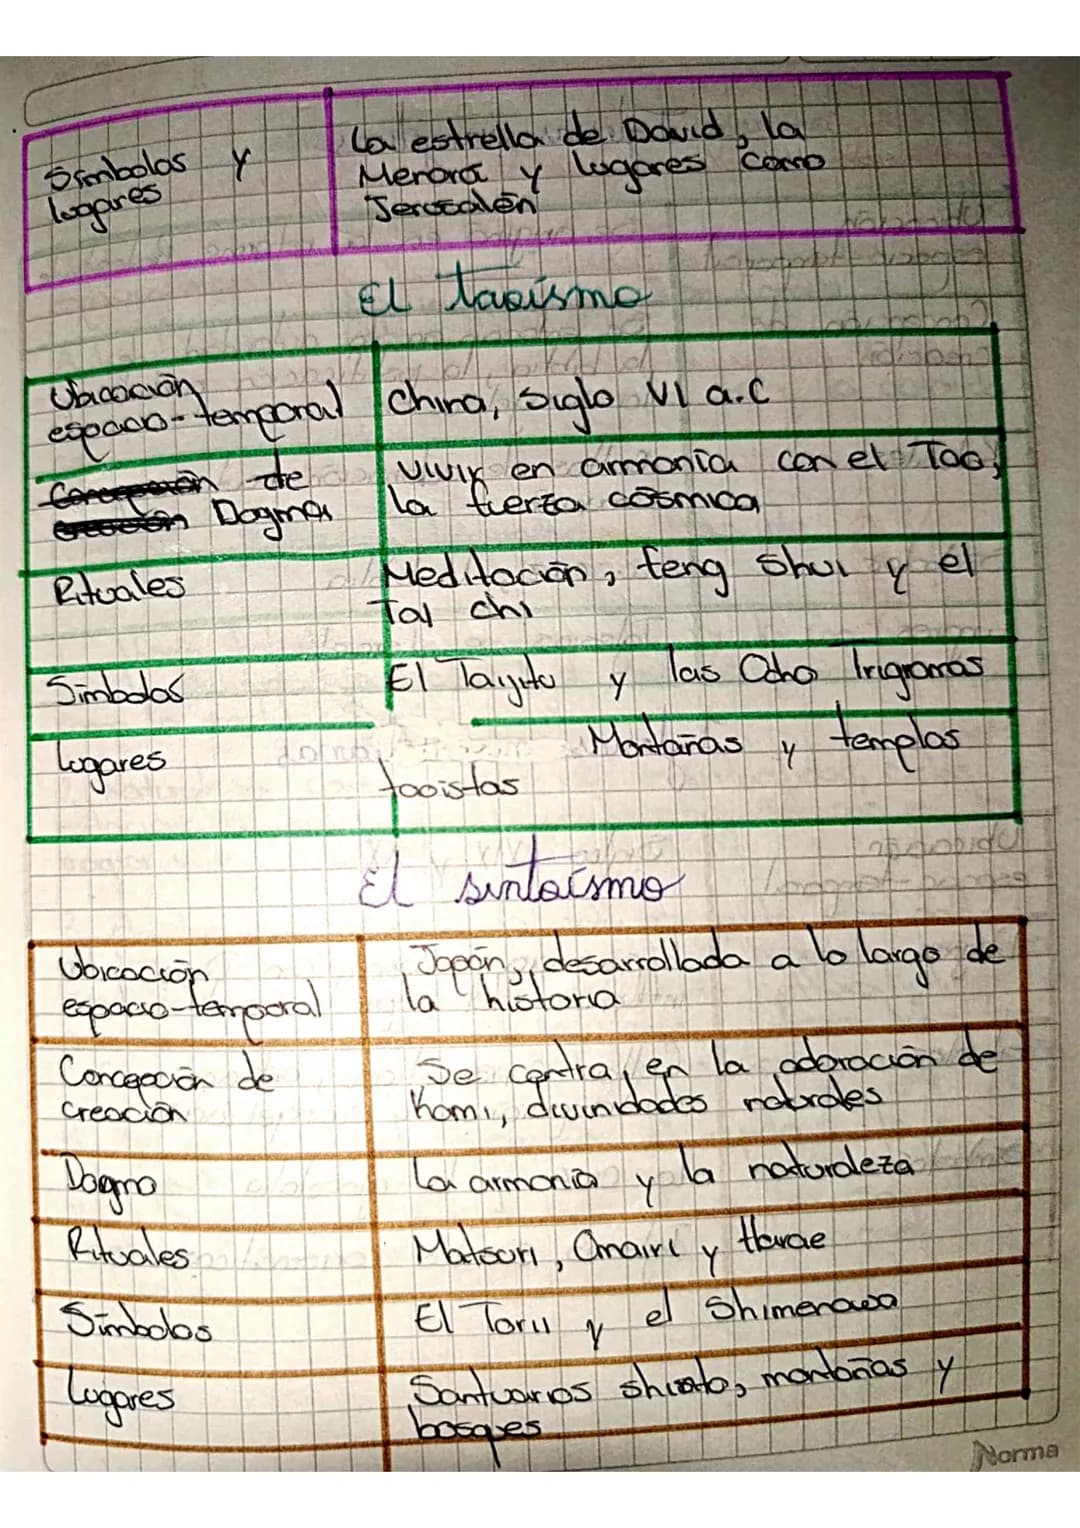 Símbolos y
lugares
La estrella de David, la
Menorá y lugares como
Jerusalén
El taoísmo
Ubicación
espacio-temporal
China, Siglo VI a.C
Concepción de
creación Dogma
Vivir en armonía con el Tao,
la fuerza cósmica
Rituales
Meditación, feng Shui y el
Tai chi
Símbolos
El Tayitu y las Ocho Trigramas
lugares
Montañas y templos
taoístas
El sintoísmo
Ubicación
espacio-temporal
Japón, desarrollada a lo largo de
la historia
Concepción de
creación
Se centra en la adoración de
Kami, divinidades naturales
Dogma
La armonía y la naturaleza
Rituales
Matsuri, Omairi y Harae
Símbolos
El Torii y el Shimenawa
Lugares
Santuarios shinto, montañas y
bosques
Norma